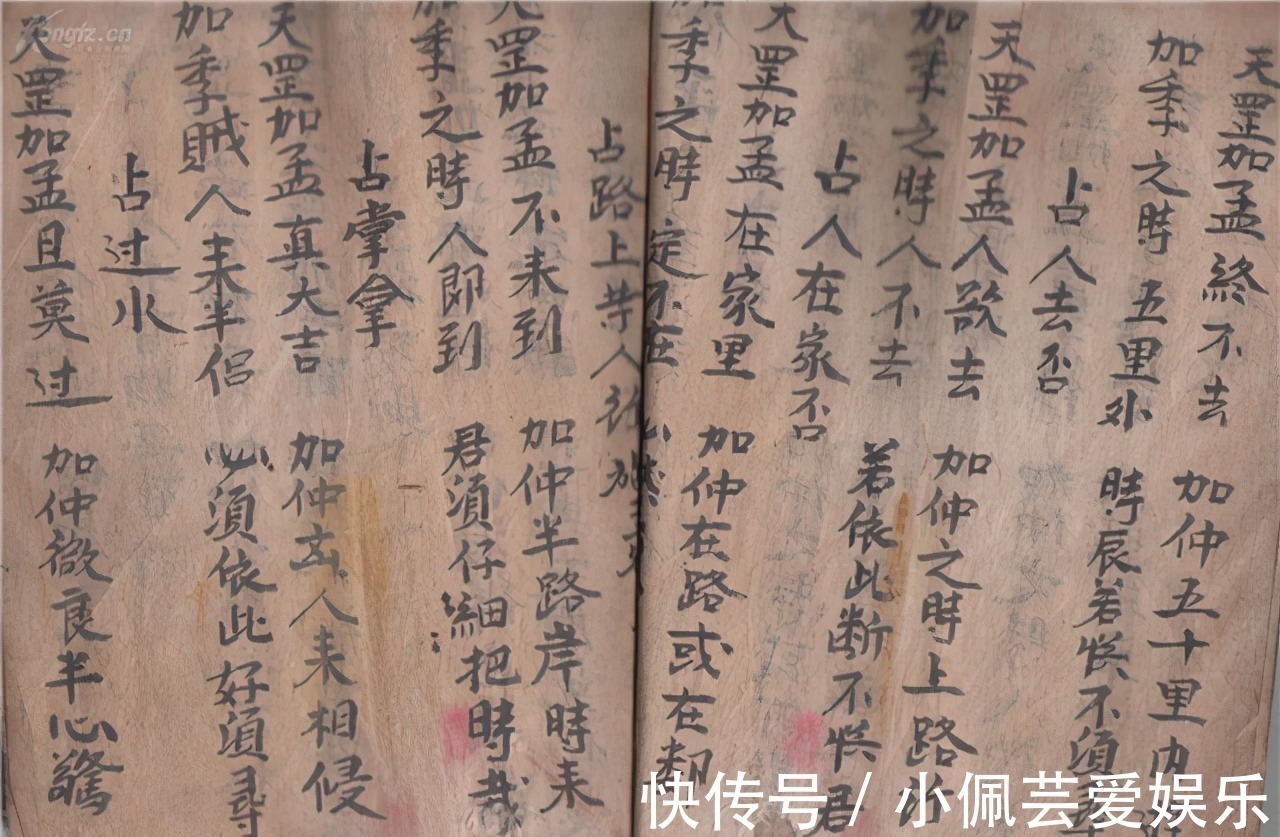 天罡加孟終不去 加仲五十里内
加季之時五里外 時辰若悞不須
占人去否
天罡加孟人欲去 加仲之時上路
加季之時人不去 若依此断不悞君
占人在家否
天罡加孟在家里 加仲在路或在
加季之時定不在
占路上等人
天罡加孟不来到 加仲半路岸時来
加季之時人即到 君須仔細把時裁
占掌拿
天罡加孟真大吉 加仲玄人来相侵
加季賊人来半侣 必須依此好須尋
占过水
天罡加孟且莫过 加仲微良半心驚
快传号 / 小佩芸爱娱乐